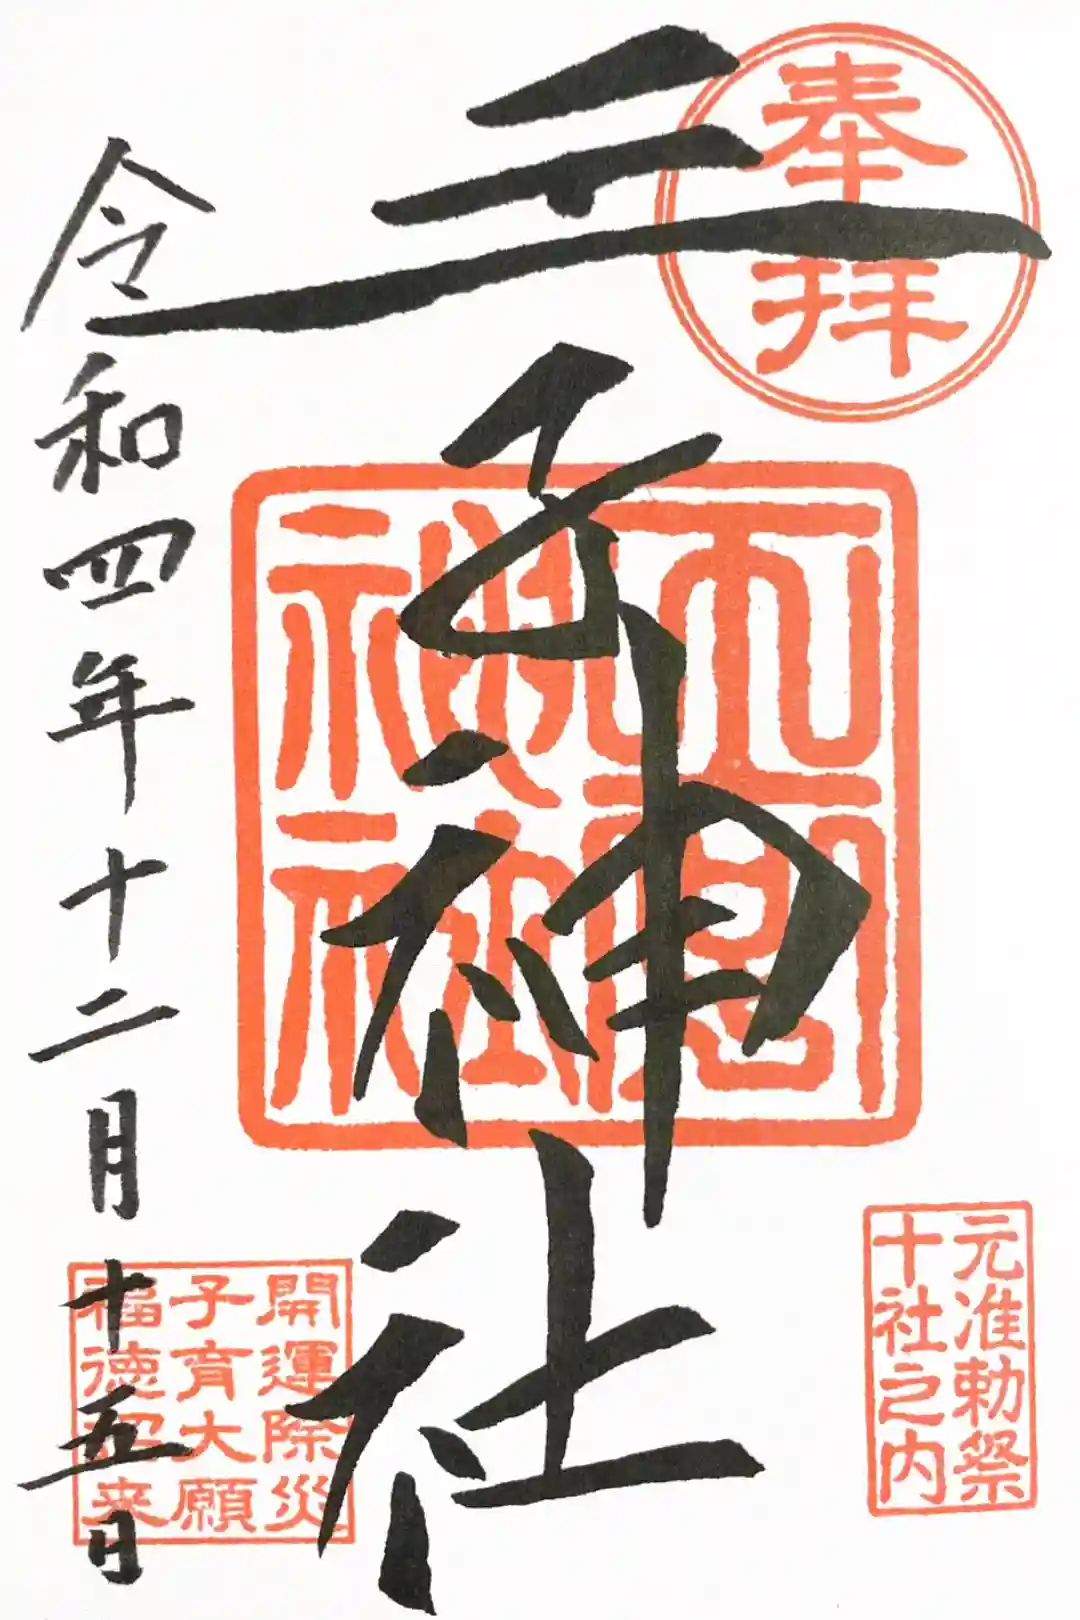 奉拝
王子神社
神社
元准勅祭
十社之内
開運除災
子育大願
福徳招来
令和四年十二月十五日